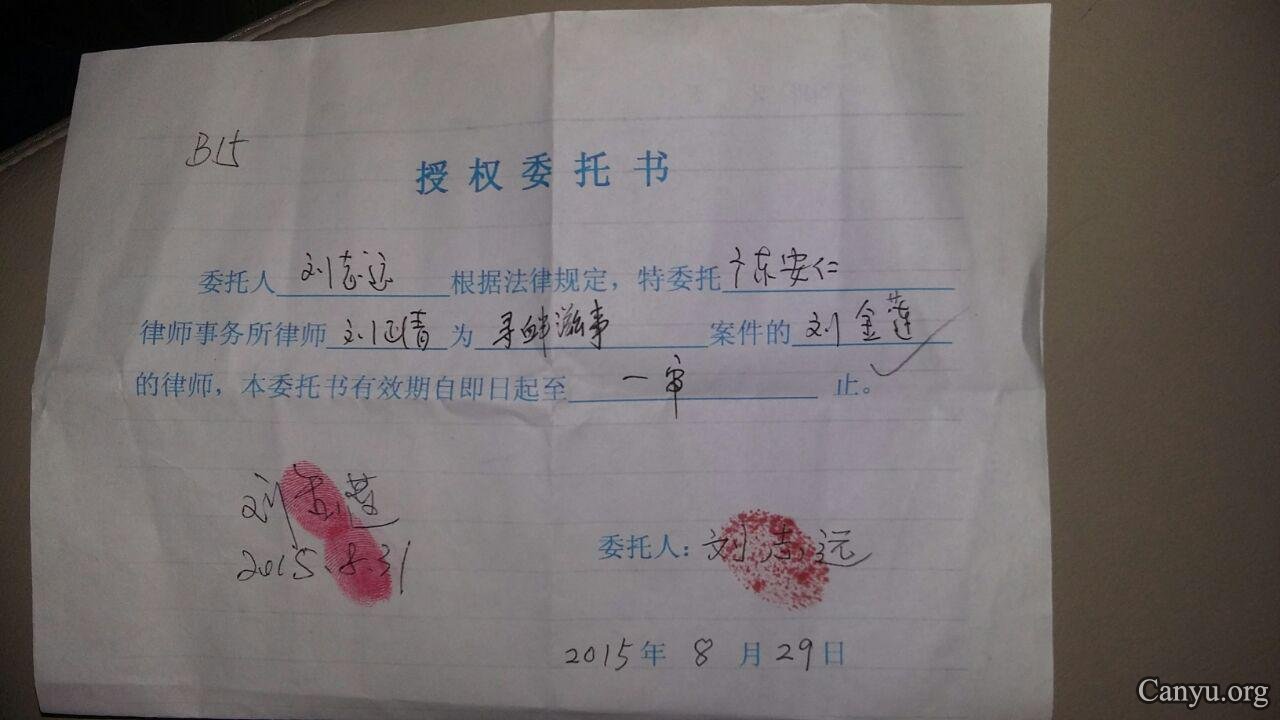 B15
授权委托书
委托人 刘志远 根据法律规定，特委托 广东安仁
律师事务所律师 刘正清 为 寻衅滋事 案件的 刘金莲
的律师，本委托书有效期自即日起至 一审 止。
刘金莲
2015.8.31
委托人：刘志远
2015年 8 月 29 日
Canyu.org